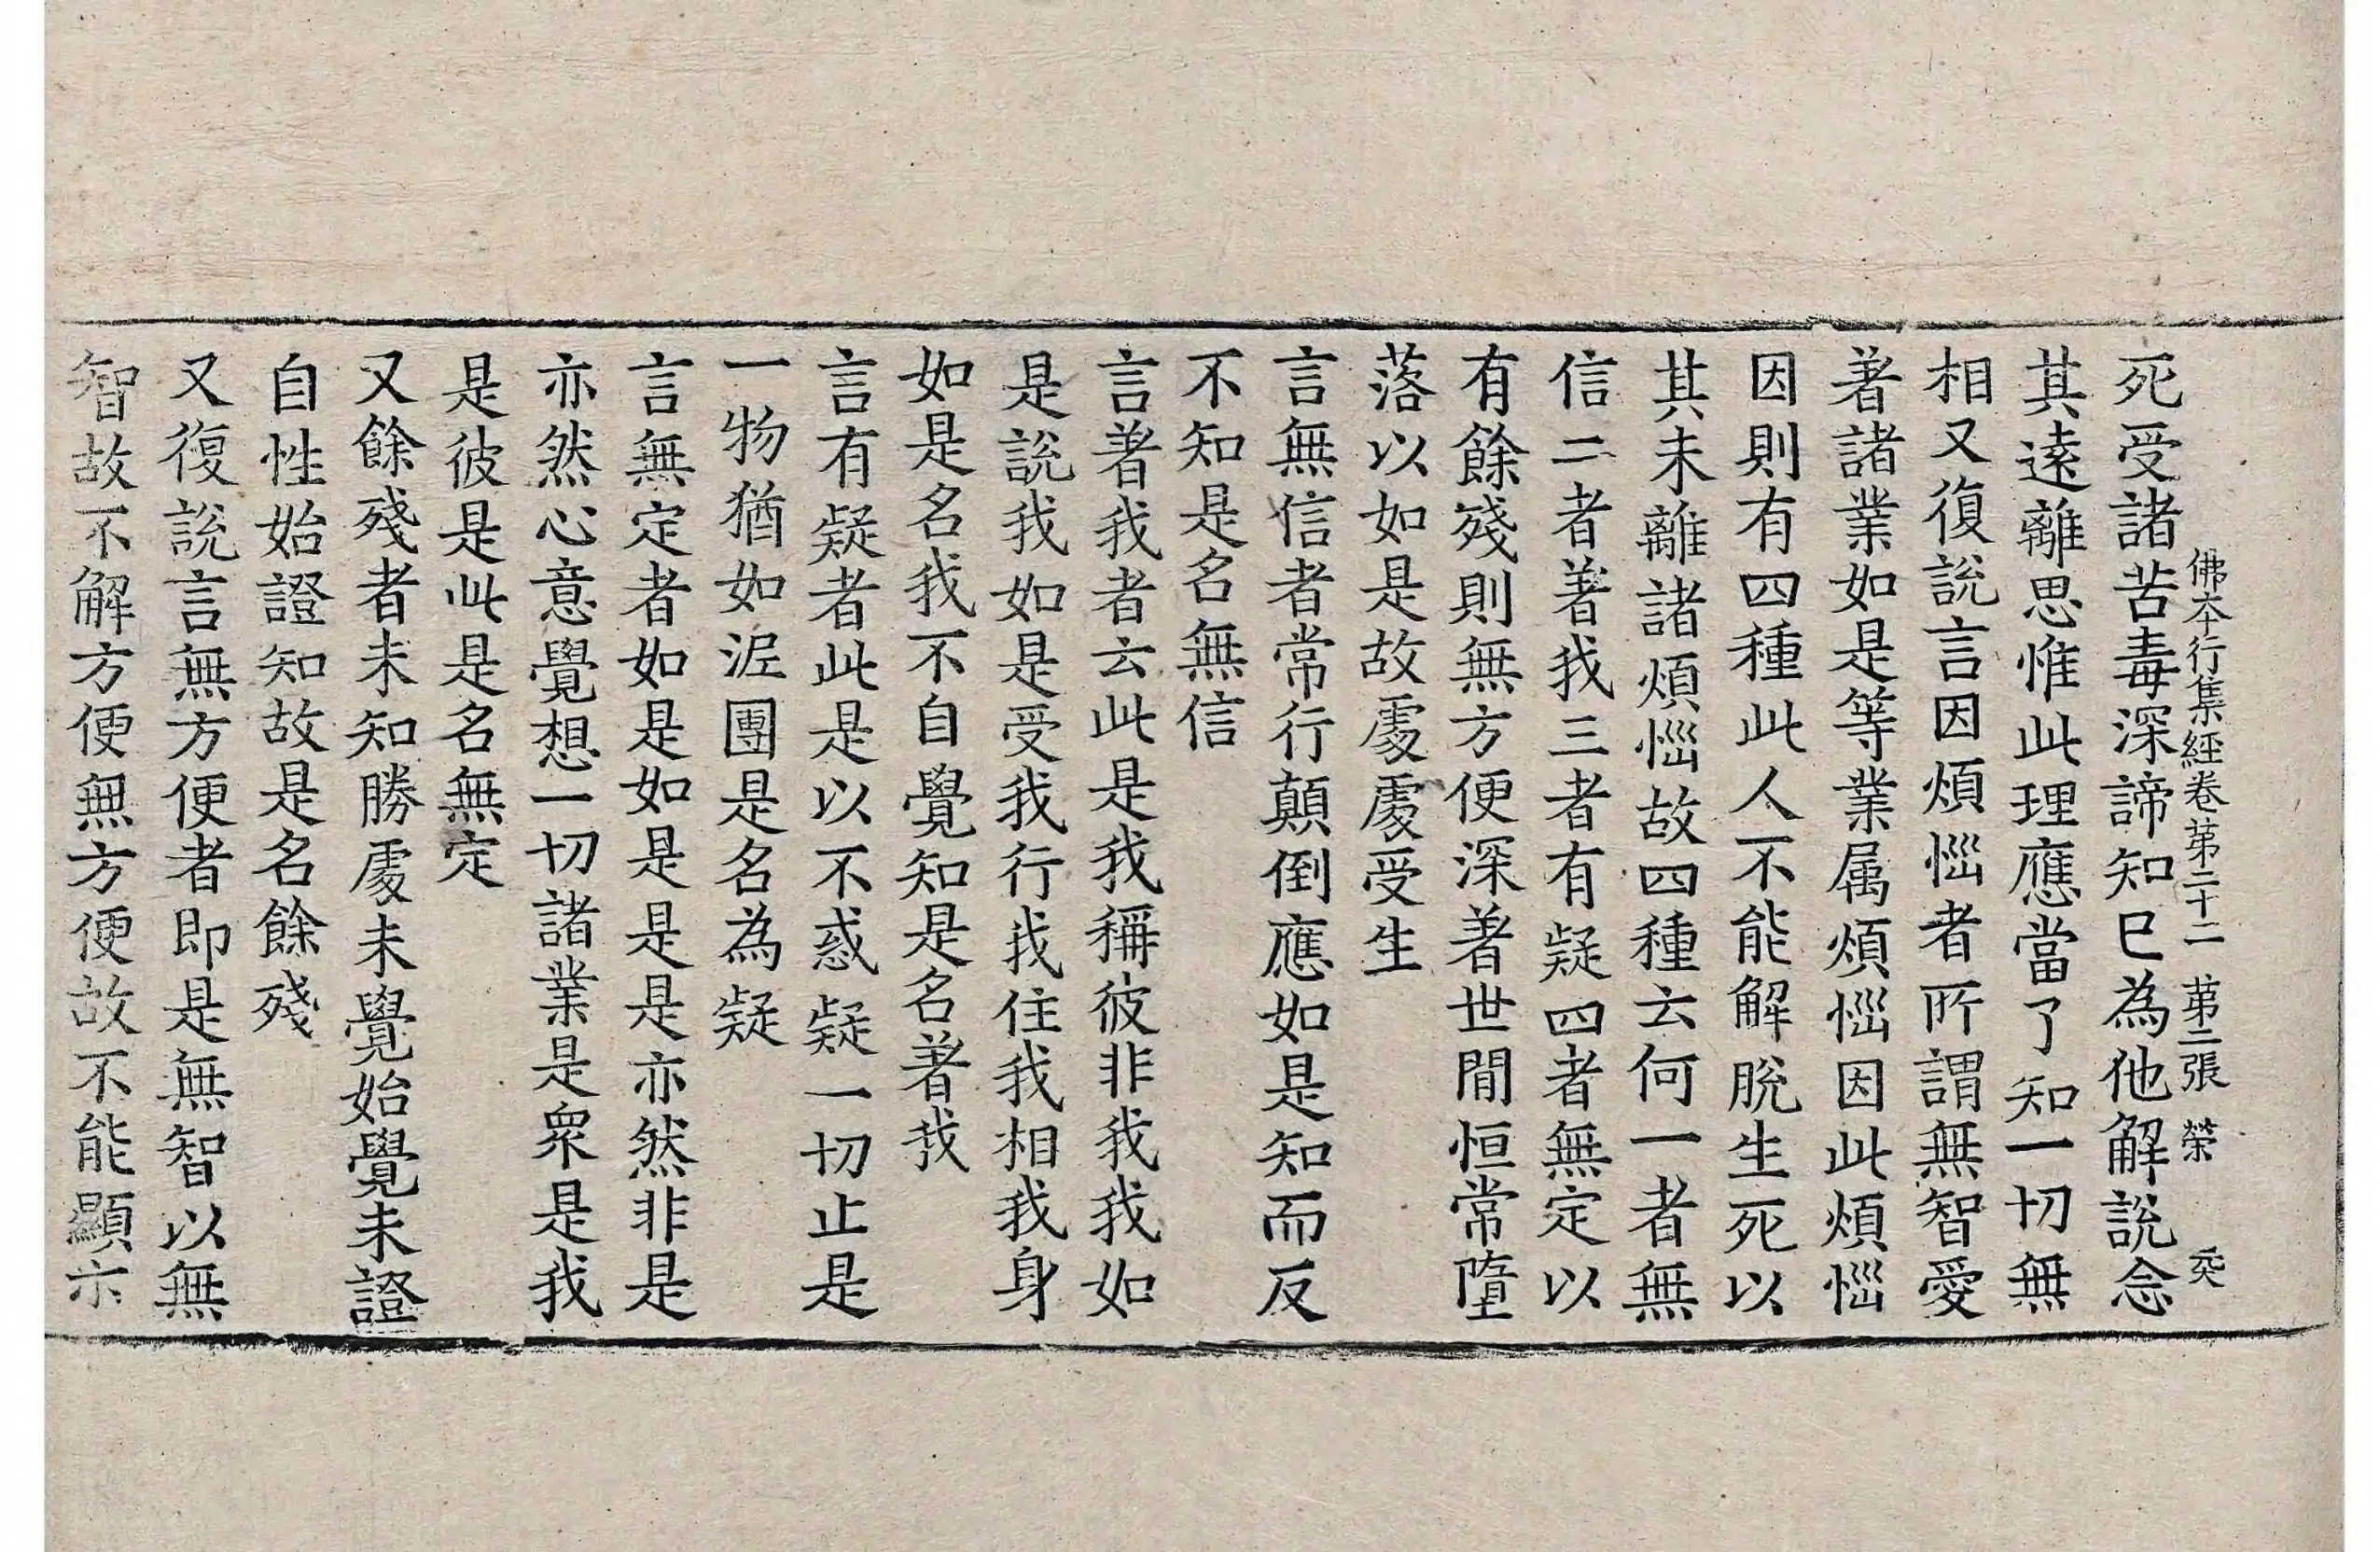 佛本行集經卷第二十二 第三張 榮 㶨
死受諸苦毒深諦知已為他解說念
其遠離思惟此理應當了知一切無
相又復說言因煩惱者所謂無智愛
著諸業如是等業属煩惱因此煩惱
因則有四種此人不能解脫生死以
其未離諸煩惱故四種云何一者無
信二者著我三者有疑四者無定以
有餘殘則無方便深著世間恒常墮
落以如是故處處受生
言無信者常行顛倒應如是知而反
不知是名無信
言著我者云此是我稱彼非我我如
是說我如是受我行我住我相我身
如是名我不自覺知是名著我
言有疑者此是以不惑疑一切止是
一物猶如泥團是名為疑
言無定者如是如是是是亦然非是
亦然心意覺想一切諸業是眾是我
是彼是此是名無定
又餘殘者未知勝處未覺始覺未證
自性始證知故是名餘殘
又復說言無方便者即是無智以無
智故不解方便無方便故不能顯示